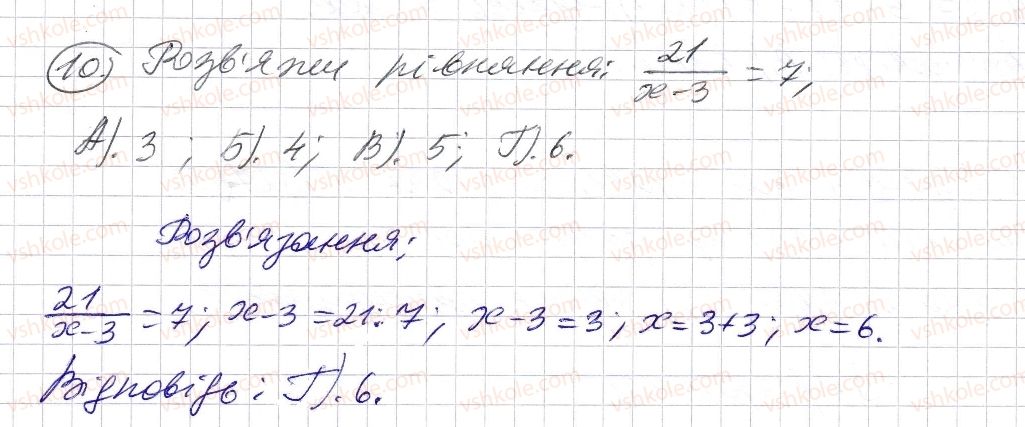 10) Розв'яжи рівняння: 21/(x-3) = 7;
А). 3 ; Б). 4; В). 5; Г). 6.
Розв'язання;
21/(x-3) = 7; x-3 = 21:7; x-3 = 3; x = 3+3; x = 6.
Відповідь: Г). 6.